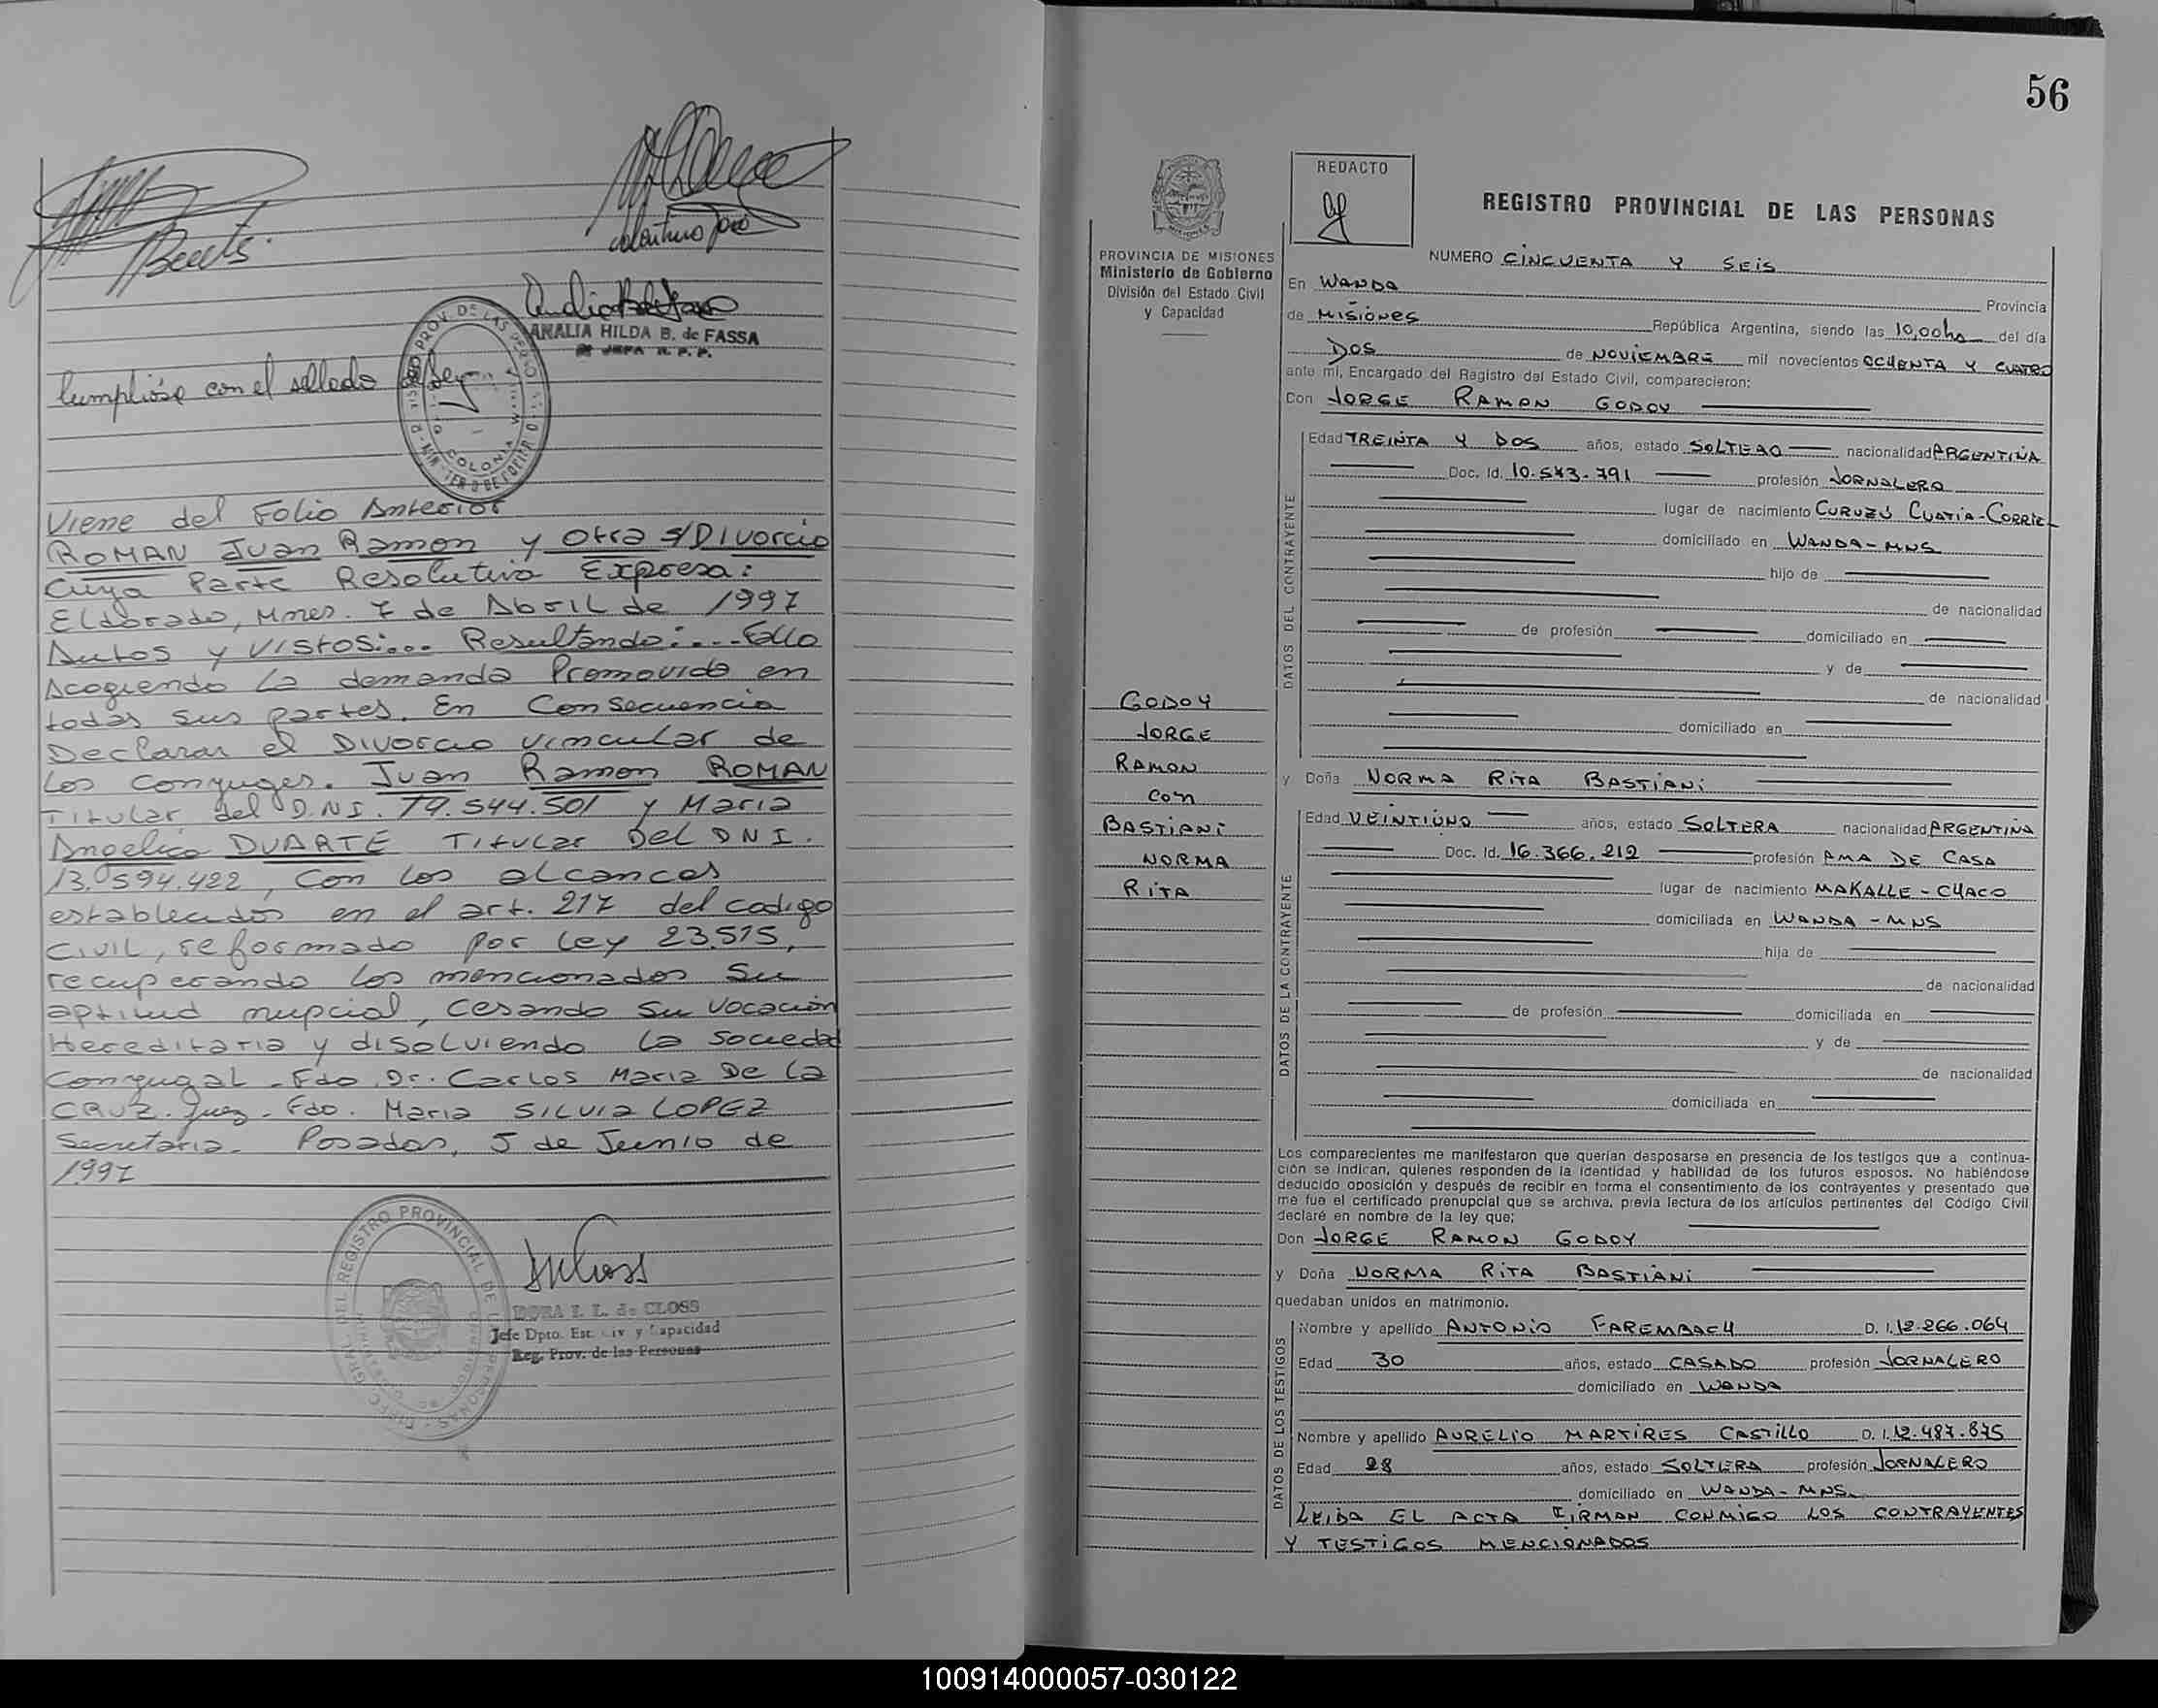 Cumplióse con el sellado de ley
ANALIA HILDA B. de FASSA
JEFA R. P. P.
COLONIA WANDA
Viene del Folio Anterior
ROMAN Juan Ramon y Otra s/Divorcio
Cuya Parte Resolutiva Expresa:
Eldorado, Mnes. 7 de Abril de 1997
Autos y Vistos:... Resultando:... Fallo
Acogiendo la demanda Promovida en
todas sus partes. En Consecuencia
Declarar el Divorcio vincular de
los conyuges. Juan Ramon ROMAN
Titular del D.N.I. 19.544.501 y Maria
Angelica DUARTE Titular Del DNI.
13.594.422, Con los alcances
establecidos en el art. 217 del codigo
Civil, reformado por Ley 23.515,
recuperando los mencionados Su
aptitud nupcial, Cesando Su Vocación
Hereditaria y disolviendo la Sociedad
Conyugal - Fdo. Dr. Carlos Maria De la
CRUZ. Juez - Fdo. Maria SILVIA LOPEZ
Secretaria. Posadas, 5 de Junio de
1997
DORA E. L. de CLOSS
Jefe Dpto. Est. Civ. y Capacidad
Reg. Prov. de las Personas
56
REDACTO
REGISTRO PROVINCIAL DE LAS PERSONAS
PROVINCIA DE MISIONES
Ministerio de Gobierno
División del Estado Civil
y Capacidad
NUMERO CINCUENTA Y SEIS
En WANDA Provincia
de MISIONES República Argentina, siendo las 10,00hs del día
DOS de NOVIEMBRE mil novecientos OCHENTA Y CUATRO
ante mí, Encargado del Registro del Estado Civil, comparecieron:
Don JORGE RAMON GODOY
DATOS DEL CONTRAYENTE
Edad TREINTA Y DOS años, estado SOLTERO nacionalidad ARGENTINA
Doc. Id. 10.543.791 profesión JORNALERO
lugar de nacimiento CURUZU CUATIA-CORRIE-
domiciliado en WANDA-MNS
hijo de
de nacionalidad
de profesión domiciliado en
y de
de nacionalidad
domiciliado en
GODOY
JORGE
RAMON
con
BASTIANI
NORMA
RITA
y Doña NORMA RITA BASTIANI
DATOS DE LA CONTRAYENTE
Edad VEINTIUNO años, estado SOLTERA nacionalidad ARGENTINA
Doc. Id. 16.366.212 profesión AMA DE CASA
lugar de nacimiento MAKALLE-CHACO
domiciliada en WANDA-MNS
hija de
de nacionalidad
de profesión domiciliada en
y de
de nacionalidad
domiciliada en
Los comparecientes me manifestaron que querían desposarse en presencia de los testigos que a continua-
ción se indican, quienes responden de la identidad y habilidad de los futuros esposos. No habiéndose
deducido oposición y después de recibir en forma el consentimiento de los contrayentes y presentado que
me fue el certificado prenupcial que se archiva, previa lectura de los artículos pertinentes del Código Civil
declaré en nombre de la ley que;
Don JORGE RAMON GODOY
y Doña NORMA RITA BASTIANI
quedaban unidos en matrimonio.
DATOS DE LOS TESTIGOS
Nombre y apellido ANTONIO FAREMBACH D. I. 12.266.064
Edad 30 años, estado CASADO profesión JORNALERO
domiciliado en WANDA
Nombre y apellido AURELIO MARTIRES CASTILLO D. I. 12.487.875
Edad 28 años, estado SOLTERA profesión JORNALERO
domiciliado en WANDA-MNS.
LEIDA EL ACTA FIRMAN CONMIGO LOS CONTRAYENTES
Y TESTIGOS MENCIONADOS
100914000057-030122